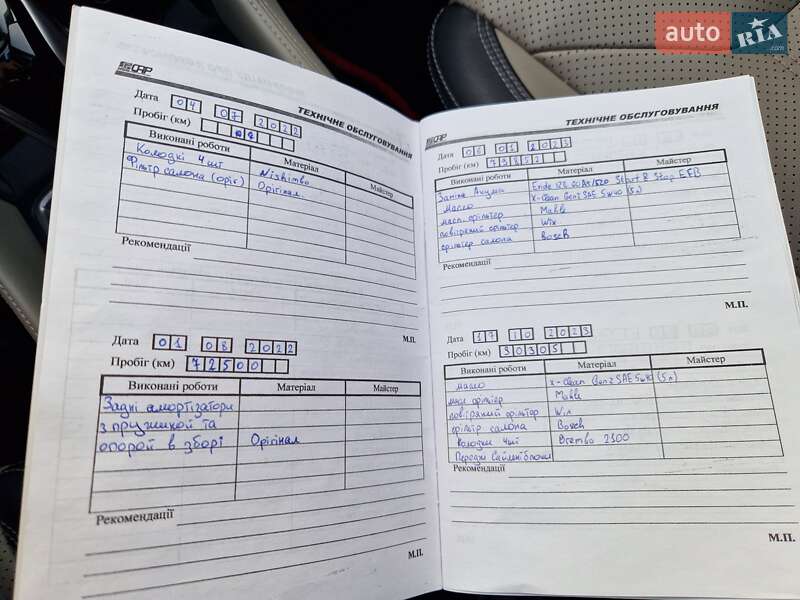 auto RIA .com
ТЕХНІЧНЕ ОБСЛУГОВУВАННЯ
Дата 04 07 2022
Пробіг (км)
Виконані роботи Матеріал Майстер
Колодкі 4 шт Nishimbo
Фільтр салона (оріг) Орігінал.
Рекомендації
М.П.
Дата 01 08 2022
Пробіг (км) 72500
Виконані роботи Матеріал Майстер
Задні амортізатори
з пружинкой та
опорой в зборі Орігінал
Рекомендації
М.П.
ТЕХНІЧНЕ ОБСЛУГОВУВАННЯ
Дата 01 2023
Пробіг (км) 73852
Виконані роботи Матеріал Майстер
Заміна Start & Stop EFB
масло X-Clean Gen2 SAE 5W40 (5л)
масл. фільтер Mahle
повітряний фільтер Wix
фільтер салона Bosch
Рекомендації
М.П.
Дата 17 10 2023
Пробіг (км) 30305
Виконані роботи Матеріал Майстер
масло X-Clean Gen2 SAE 5W40 (5л)
масл фільтер Mahle
повітряний фільтер Wix
фільтр салона Bosch
колодки 4шт Brembo 2300
Передні Сайлентблоки
Рекомендації
М.П.